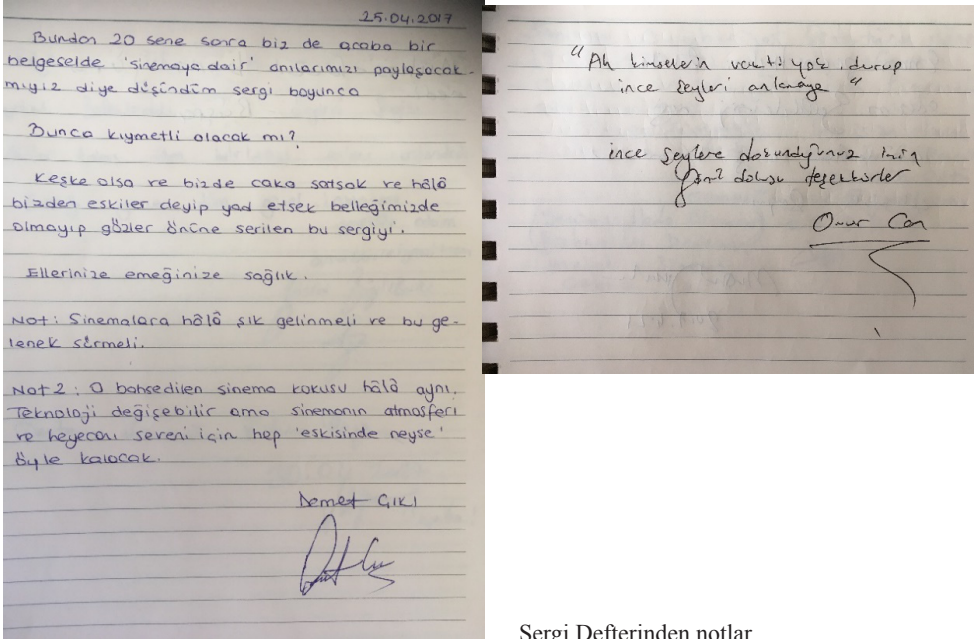 25.04.2017
Bundan 20 sene sonra biz de acaba bir
belgeselde 'sinemaya dair' anılarımızı paylaşacak
mıyız diye düşündüm sergi boyunca
Bunca kıymetli olacak mı?
Keşke olsa ve bizde caka satsak ve hâlâ
bizden eskiler deyip yad etsek belleğimizde
olmayıp gözler önüne serilen bu sergiyi.
Ellerinize emeğinize sağlık.
Not: Sinemalara hâlâ şık gelinmeli ve bu ge-
lenek sürmeli.
Not 2: O bahsedilen sinema kokusu hâlâ aynı.
Teknoloji değişebilir ama sinemanın atmosferi
ve heyecanı seveni için hep 'eskisinde neyse'
öyle kalacak.
Demet ÇIKI
"Ah kimselerin vakti yok durup
ince şeyleri anlamaya"
ince şeylere dokunduğunuz için
gönül dolusu teşekkürler
Onur Can
Sergi Defterinden notlar